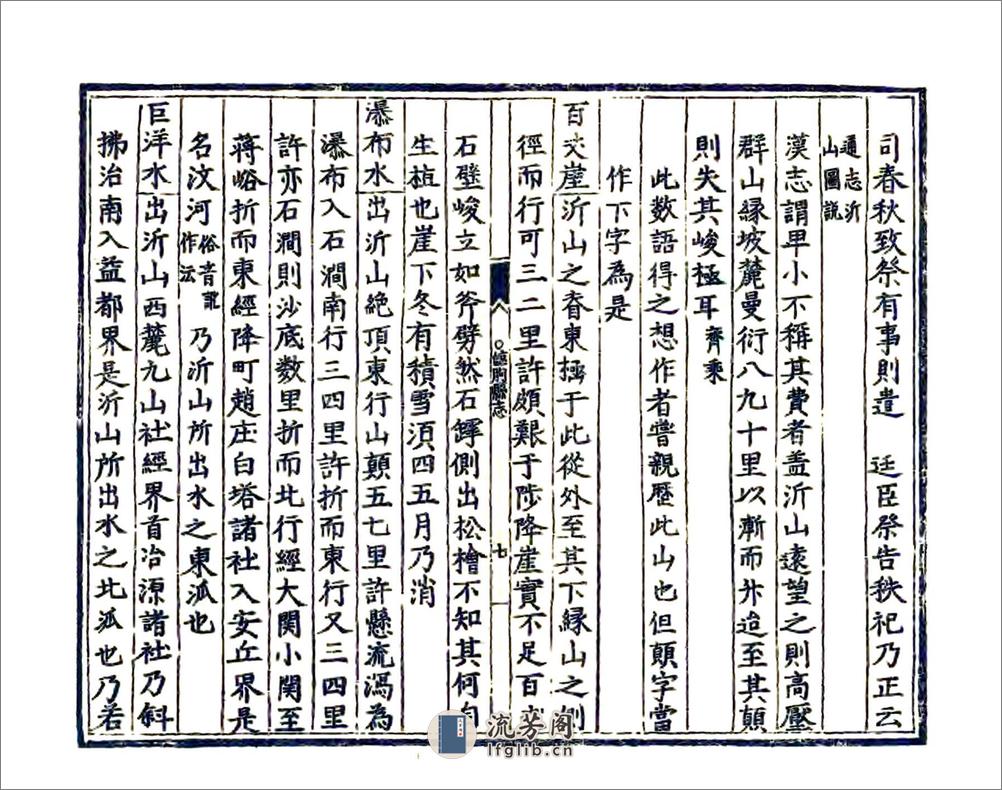 司春秋致祭有事則遣 廷臣祭告秩祀乃正云
通志沂
山圖說
漢志謂卑小不稱其費者盖沂山遠望之則高壓
群山縁坡麓曼衍八九十里以漸而升迨至其顛
則失其峻極耳 齊乘
此数語得之想作者嘗親歷此山也但顛字當
作下字為是
百丈崖 沂山之脊東極于此從外至其下縁山之側
徑而行可三二里許頗艱于陟降崖實不足百丈
石壁峻立如斧劈然石罅側出松檜不知其何自
生植也崖下冬有積雪須四五月乃消
臨朐縣志
七
瀑布水 出沂山絶頂東行山顛五七里許懸流瀉為
瀑布入石澗南行三四里許折而東行又三四里
許亦石澗則沙底数里折而北行經大関小関至
蔣峪折而東經降町趙庄白塔諸社入安丘界是
名汶河 俗音訛作㳒 乃沂山所出水之東派也
巨洋水 出沂山西麓九山社經界首冶源諸社乃斜
拂治南入益都界是沂山所出水之北派也乃若
流芳阁
lfglib.cn